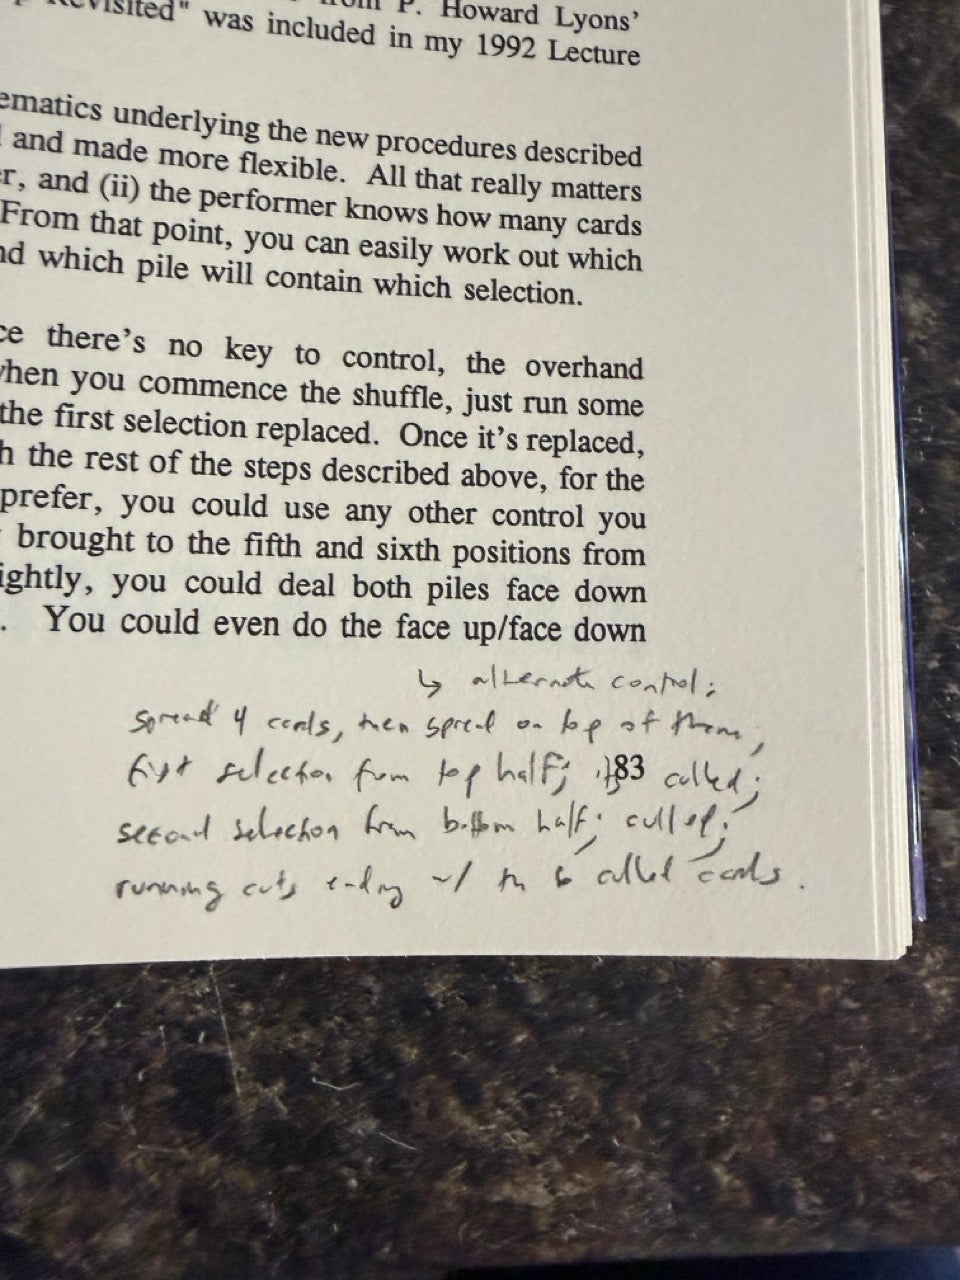 from P. Howard Lyons’
Revisited" was included in my 1992 Lecture
ematics underlying the new procedures described
and made more flexible. All that really matters
r, and (ii) the performer knows how many cards
From that point, you can easily work out which
nd which pile will contain which selection.
ce there’s no key to control, the overhand
when you commence the shuffle, just run some
the first selection replaced. Once it’s replaced,
h the rest of the steps described above, for the
prefer, you could use any other control you
brought to the fifth and sixth positions from
ightly, you could deal both piles face down
. You could even do the face up/face down
↳ alternate control:
spread 4 cards, then spread on top of them;
first selection from top half; culled;
83
second selection from bottom half; culled;
running cuts ending w/ the 6 culled cards.